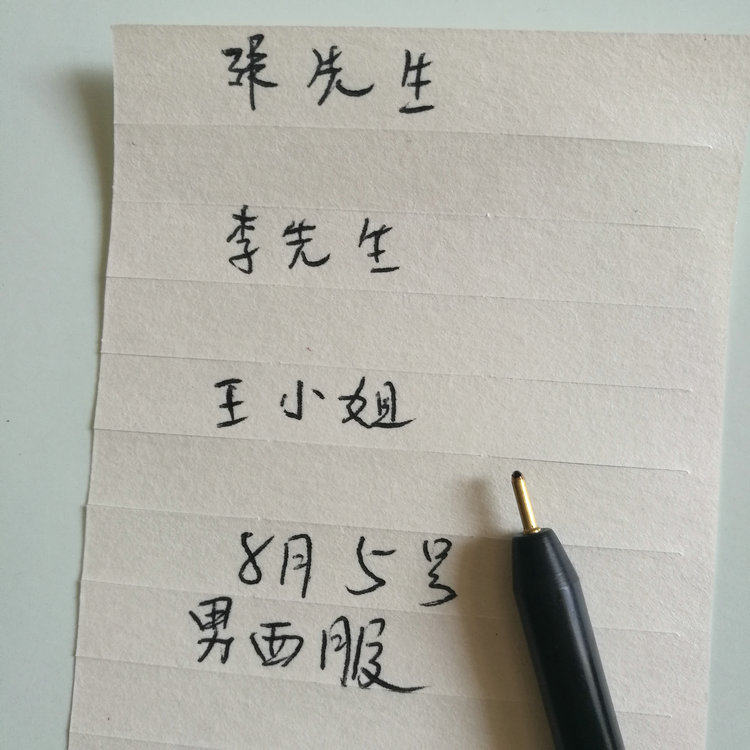 张先生
李先生
王小姐
8月5号
男西服